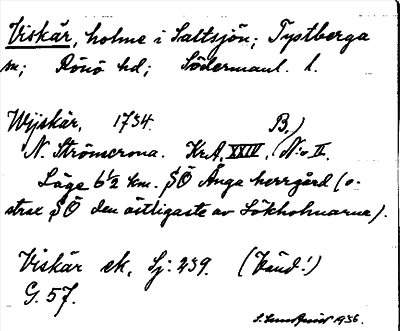 Viskär, holme i Saltsjön; Tystberga
sn; Rönö hd; Södermanl. l.
Wijskär, 1734.
N. Strömcrona. KrA, XXIV, (B.) N:o II.
Läge 6 1/2 km. SÖ Ånga herrgård (o-
strax SÖ den östligaste av Lökholmarna).
Viskär ek, Sj: 239. (Känd!)
G. 57.
1936.